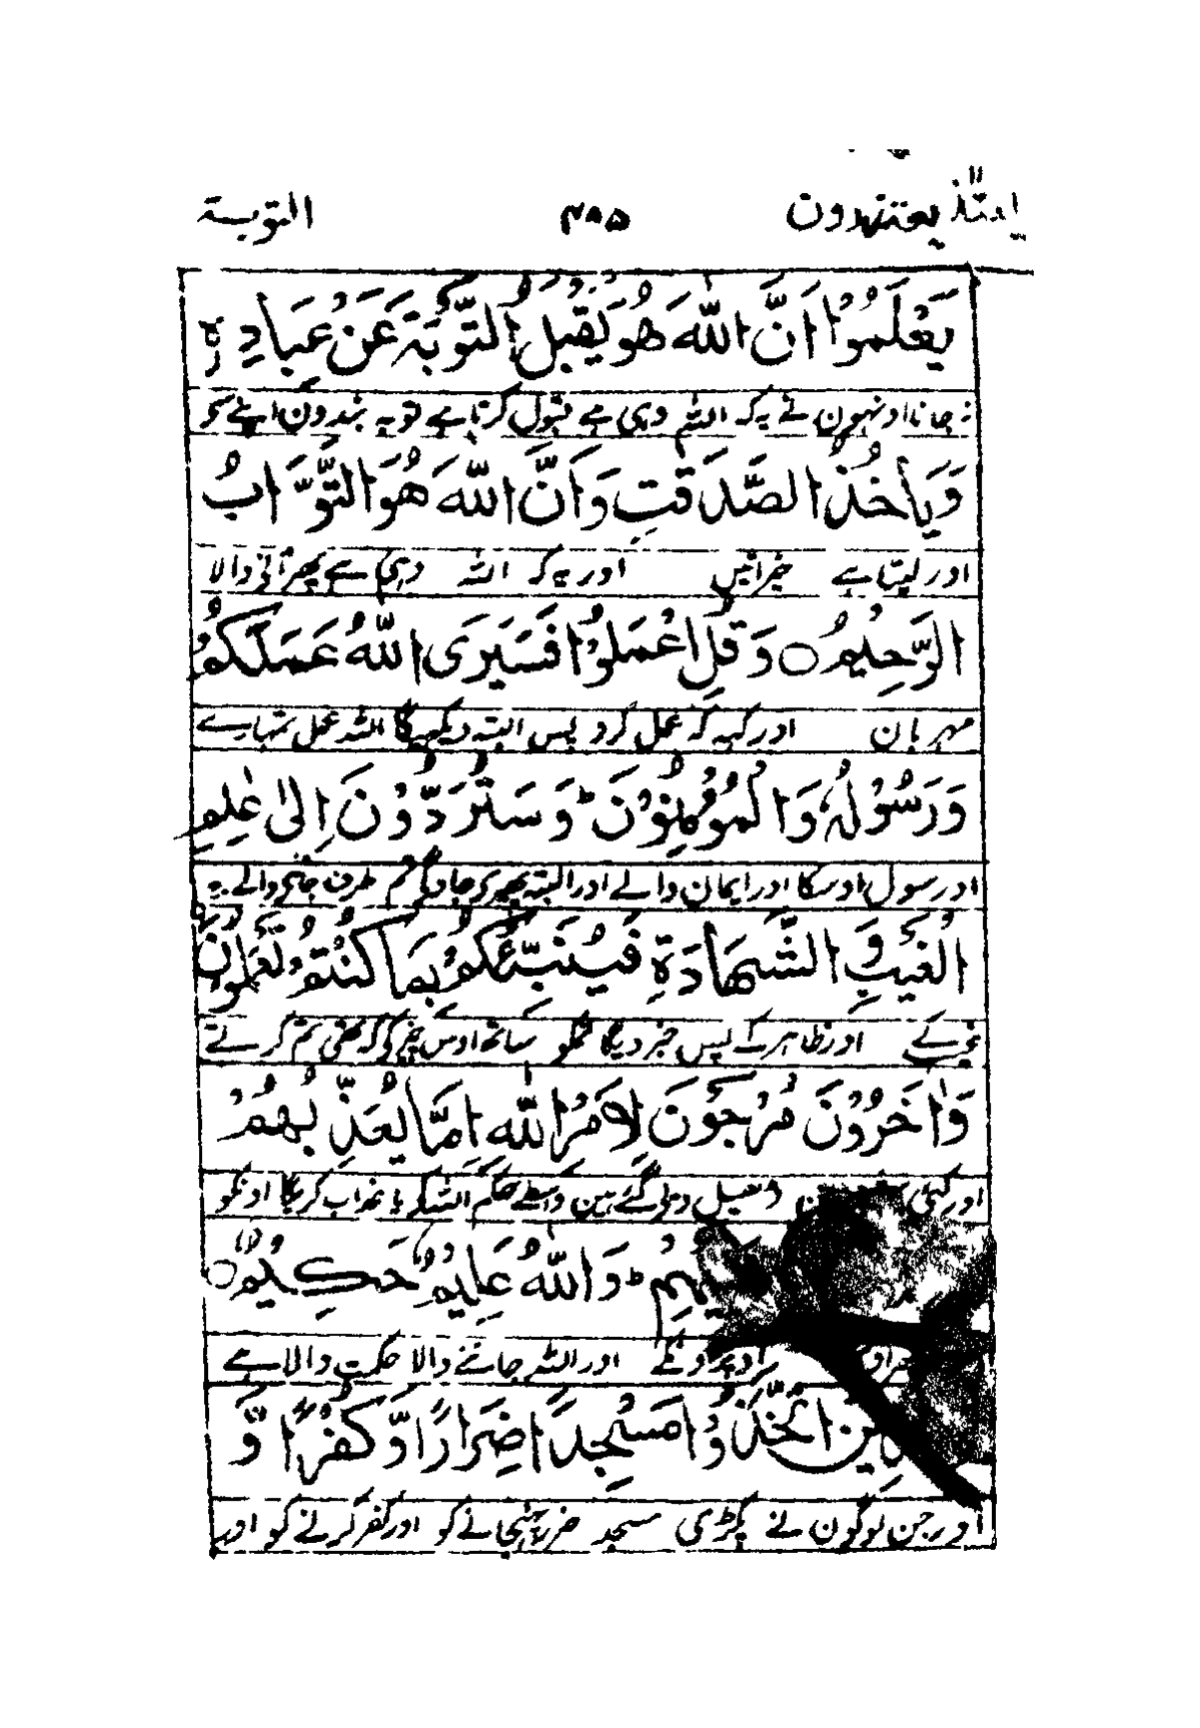 یعتذرون ۴۸۵ التوبة
يَعْلَمُوْۤا اَنَّ اللّٰهَ هُوَ يَقْبَلُ التَّوْبَةَ عَنْ عِبَادِهٖ
نہ جانا اونہون نے یہ کہ اللہ وہی ہے قبول کرتا ہے توبہ بندون اپنے سے
وَيَاْخُذُ الصَّدَقٰتِ وَاَنَّ اللّٰهَ هُوَ التَّوَّابُ
اور لیتا ہے خیراتیں اور یہ کہ اللہ وہی ہے پھر آنی والا
الرَّحِيْمُ ○ وَقُلِ اعْمَلُوْا فَسَيَرَى اللّٰهُ عَمَلَكُمْ
مہربان اور کہہ کہ عمل کرو پس البتہ دیکھیگا اللہ عمل تمہارے
وَرَسُوْلُهٗ وَالْمُؤْمِنُوْنَ ؕ وَسَتُرَدُّوْنَ اِلٰى عٰلِمِ
اور رسول اوسکا اور ایمان والے اور البتہ پھیرے جاوگے تم طرف جاننے والے
الْغَيْبِ وَالشَّهَادَةِ فَيُنَبِّئُكُمْ بِمَا كُنْتُمْ تَعْمَلُوْنَ
غیب کے اور ظاہر کے پس خبر دیگا تمکو ساتھ اوس چیز کو کہ تھی تم کرتے
وَاٰخَرُوْنَ مُرْجَوْنَ لِاَمْرِ اللّٰهِ اِمَّا يُعَذِّبُهُمْ
اور کئی ڈھیل دیے گئے ہین واسطے حکم اللہ کے یا عذاب کریگا اونکو
وَاللّٰهُ عَلِيْمٌ حَكِيْمٌ ○
اور اللہ جاننے والا حکمت والا ہے
اتَّخَذُوْا مَسْجِدًا ضِرَارًا وَّكُفْرًا وَّ
اور جن لوگون نے پکڑی مسجد ضرر پہنچانے کو اور کفر کرنے کو اور